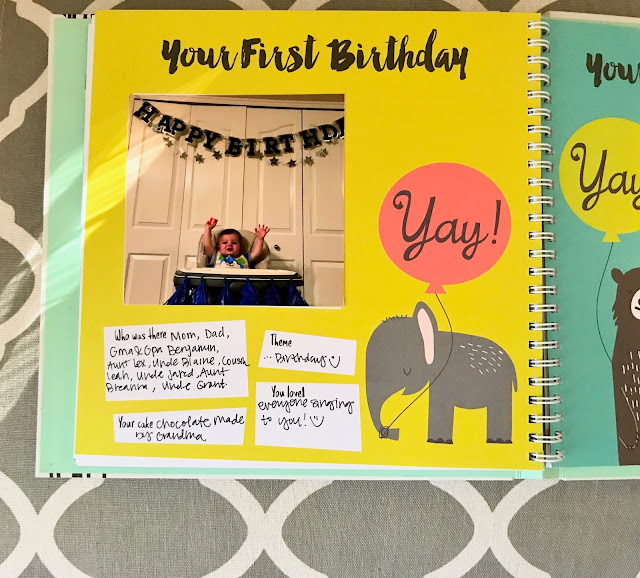 Your First Birthday
HAPPY BIRTHD
Yay!
Who was there Mom, Dad,
Gma & Gpa Benjamin,
Aunt Lex, Uncle Blaine, Cousin
Leah, Uncle Jared, Aunt
Breanna, Uncle Grant.
Theme
... Birthdays
You loved
everyone singing
to you!
Your cake chocolate made
by Grandma
Your
Yay